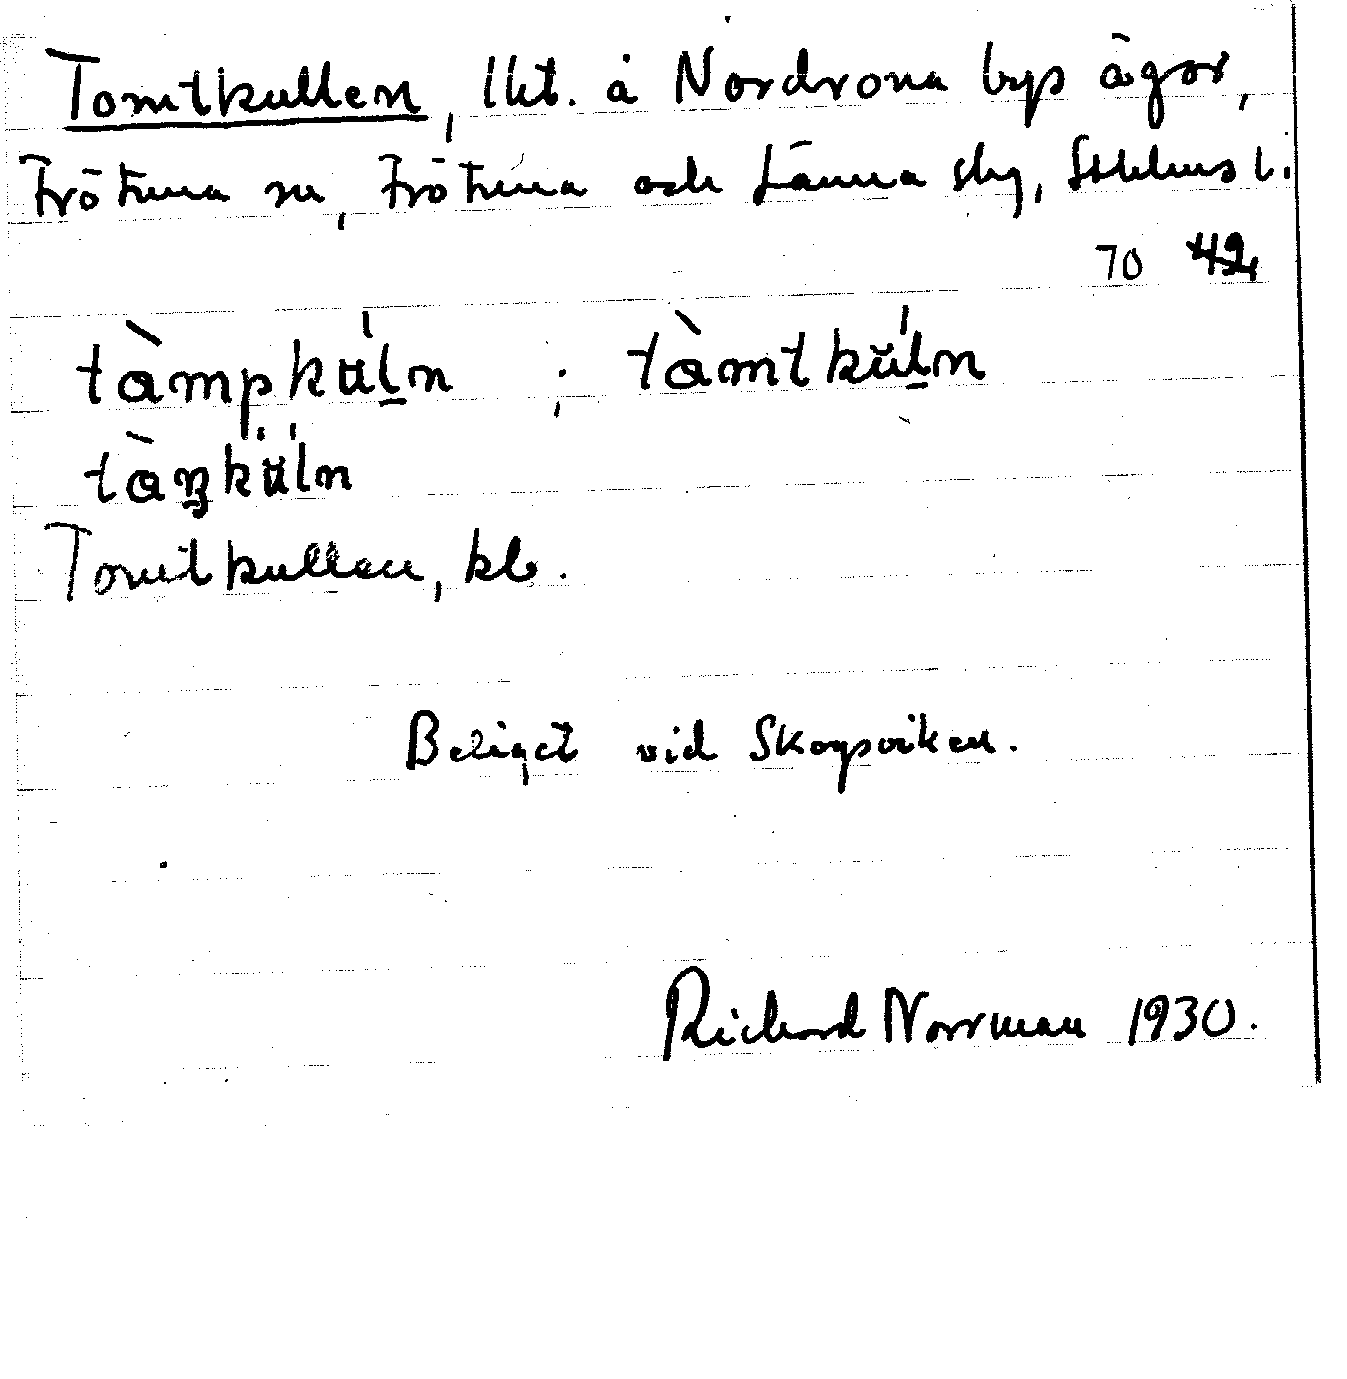 Tomtkullen, lht. å Nordrona bys ägor,
Frötuna sn, Frötuna och Länna skg, Sthlms l.
70 42
tàmpku̇ln ; tàmtku̇ln
tàŋkuln
Tomtkullen, kb.
Beliget vid Skogsviken.
Richard Norrman 1930.